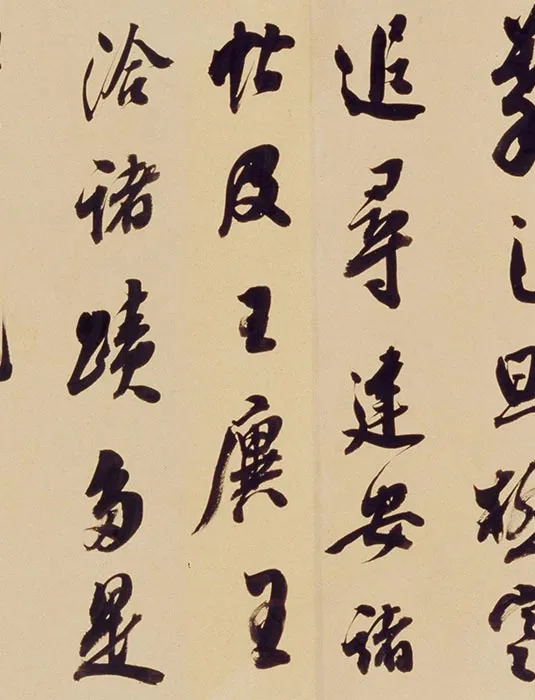 旦極寒
追尋建安諸
帖及王廙王
洽諸蹟多是